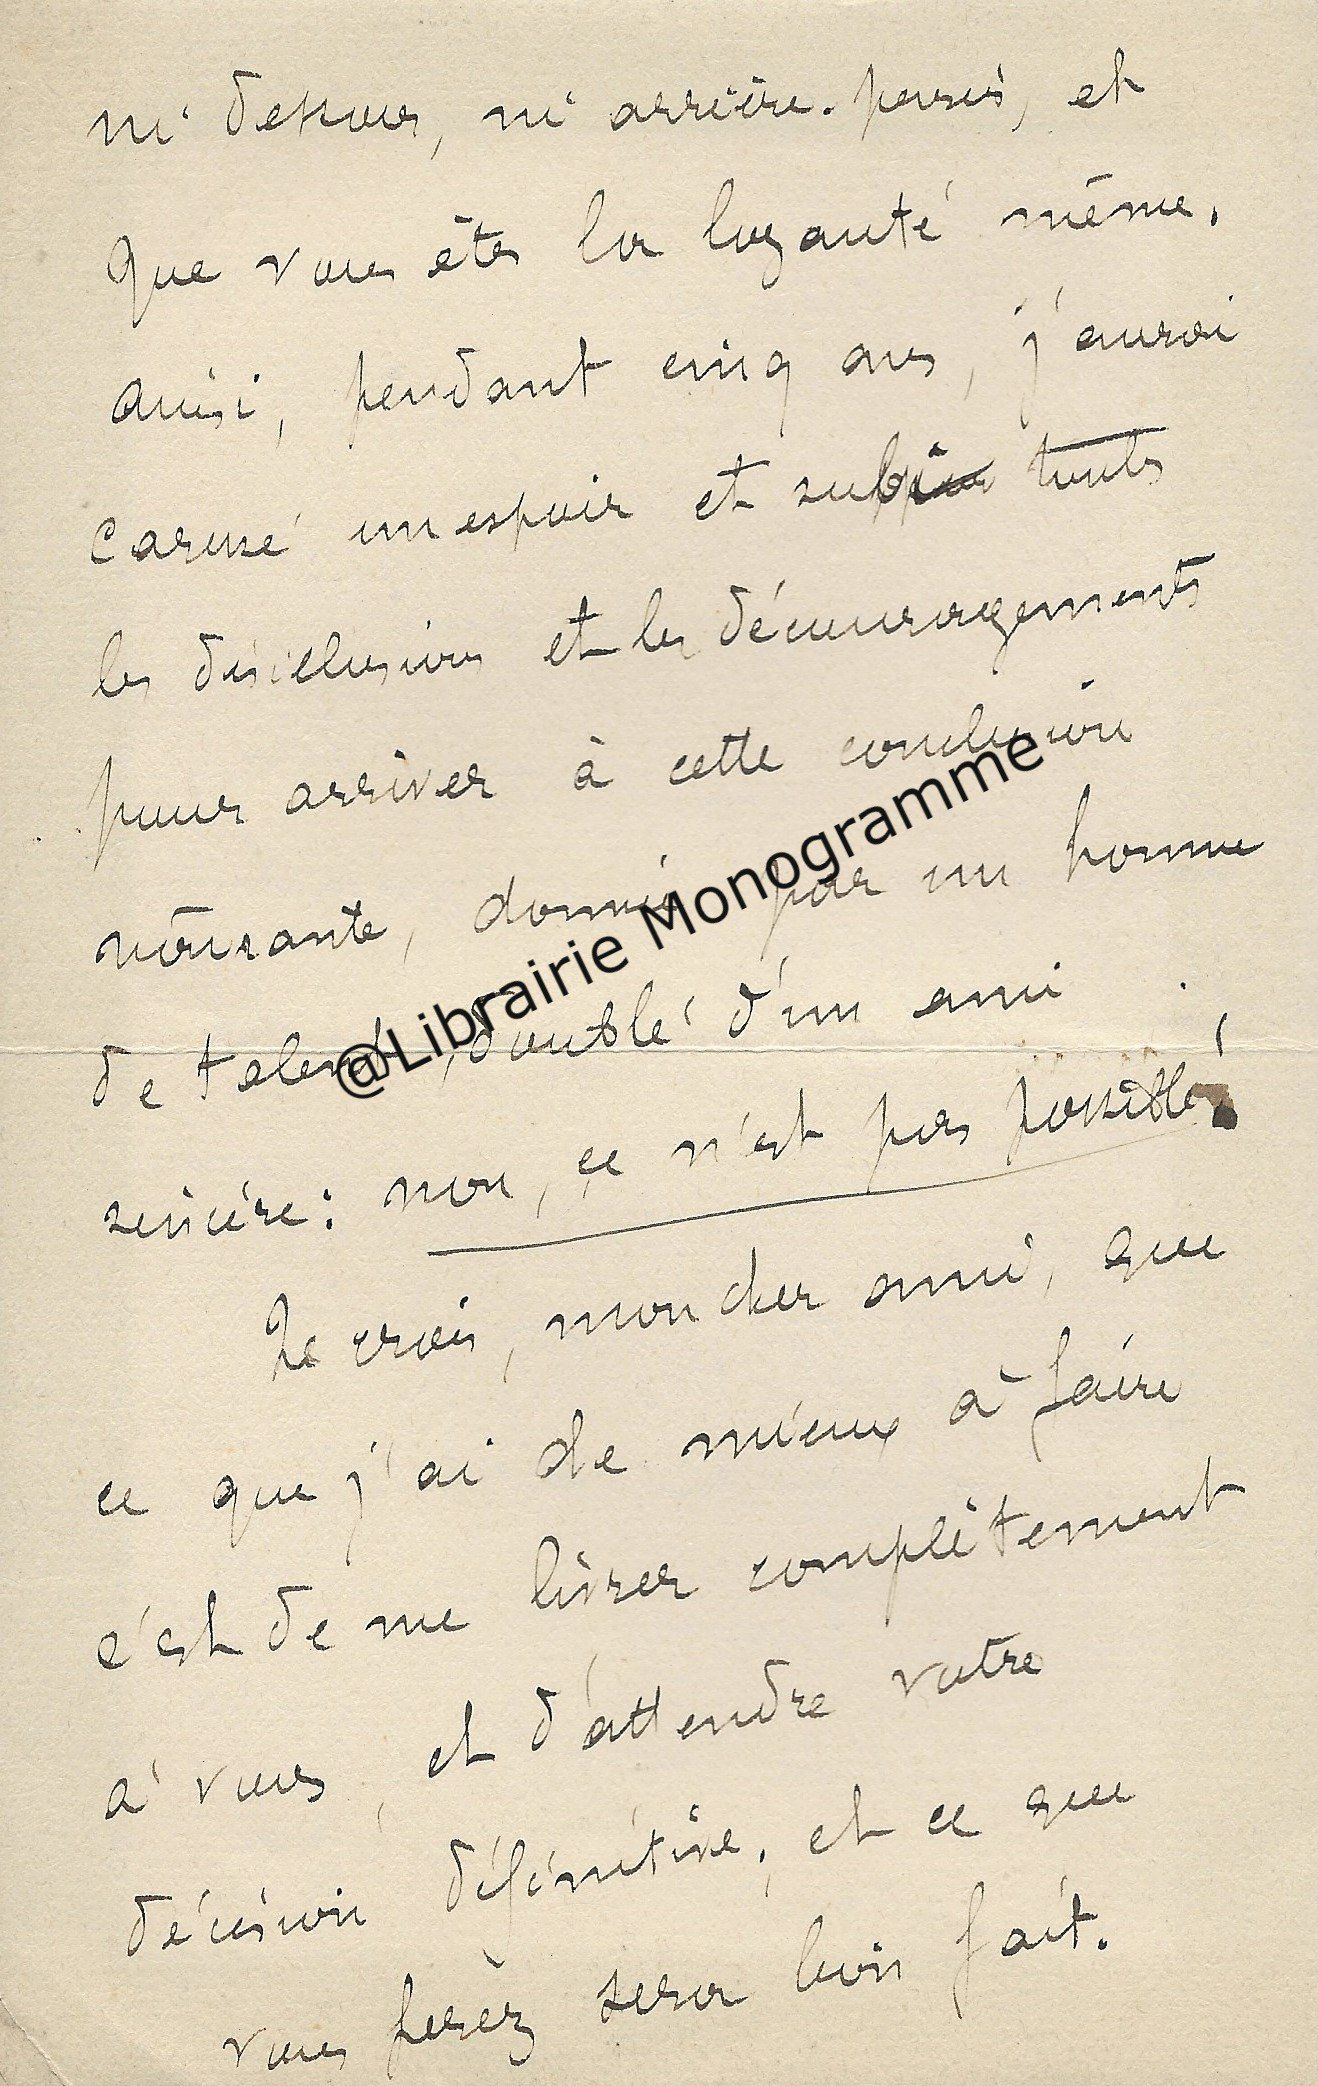 ni dessous, ni arrière-pensée, et
que vous êtes la loyauté même.
ainsi, pendant cinq ans, j'aurai
caressé un espoir et subi toutes
les désillusions et les découragements
pour arriver à cette conclusion
navrante, donnée par un homme
de talent, doublé d'un ami
sincère: non, ce n'est pas possible!
Je crois, mon cher ami, que
ce que j'ai de mieux à faire
c'est de me livrer complètement
à vous, et d'attendre votre
décision définitive, et ce que
vous ferez sera bien fait.
@Librairie Monogramme